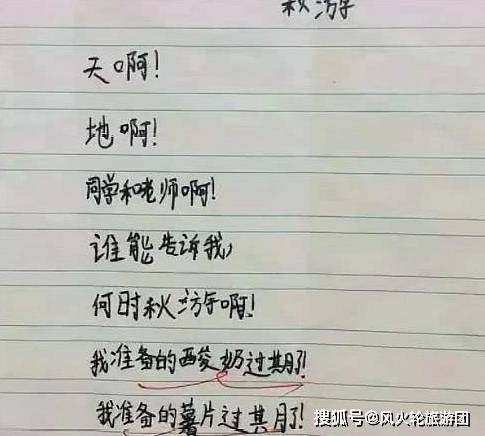 秋游
天啊!
地啊!
同学和老师啊!
谁能告诉我,
何时秋游啊!
我准备的酸奶过期了!
我准备的薯片过期了!
搜狐号@风火轮旅游团